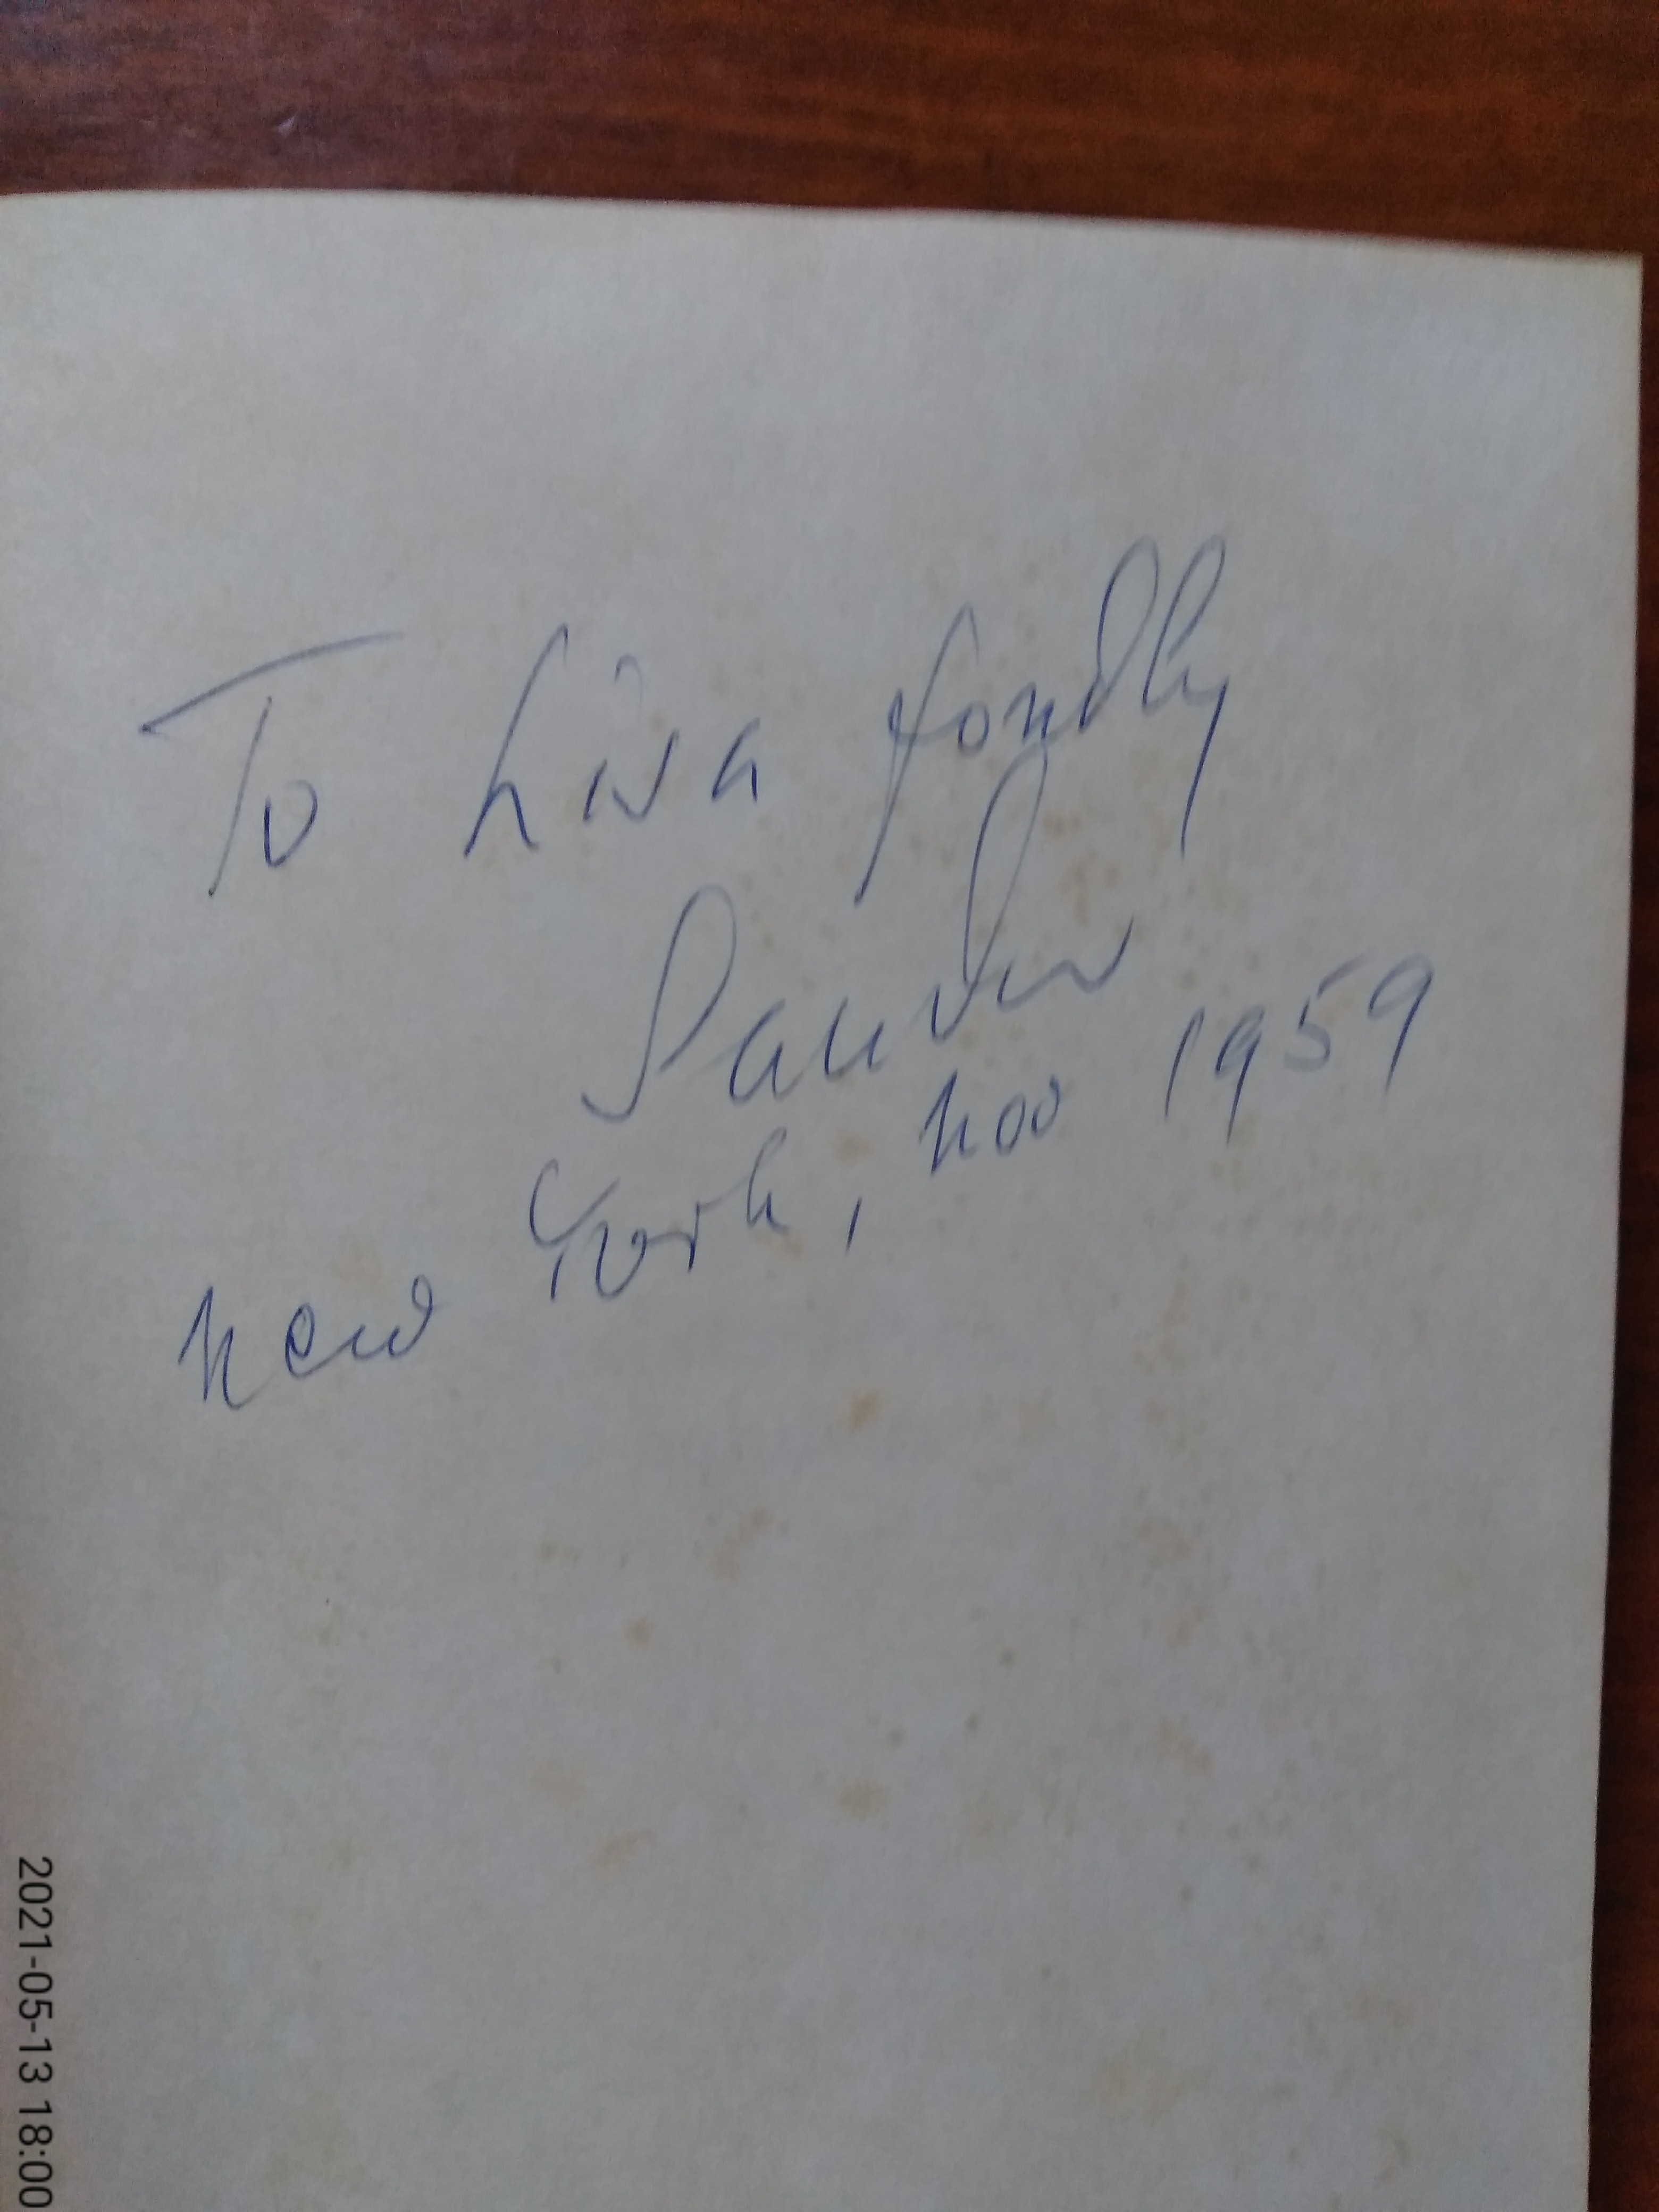 To Lisa fondly
Sandor
New York, Nov 1959
2021-05-13 18:00